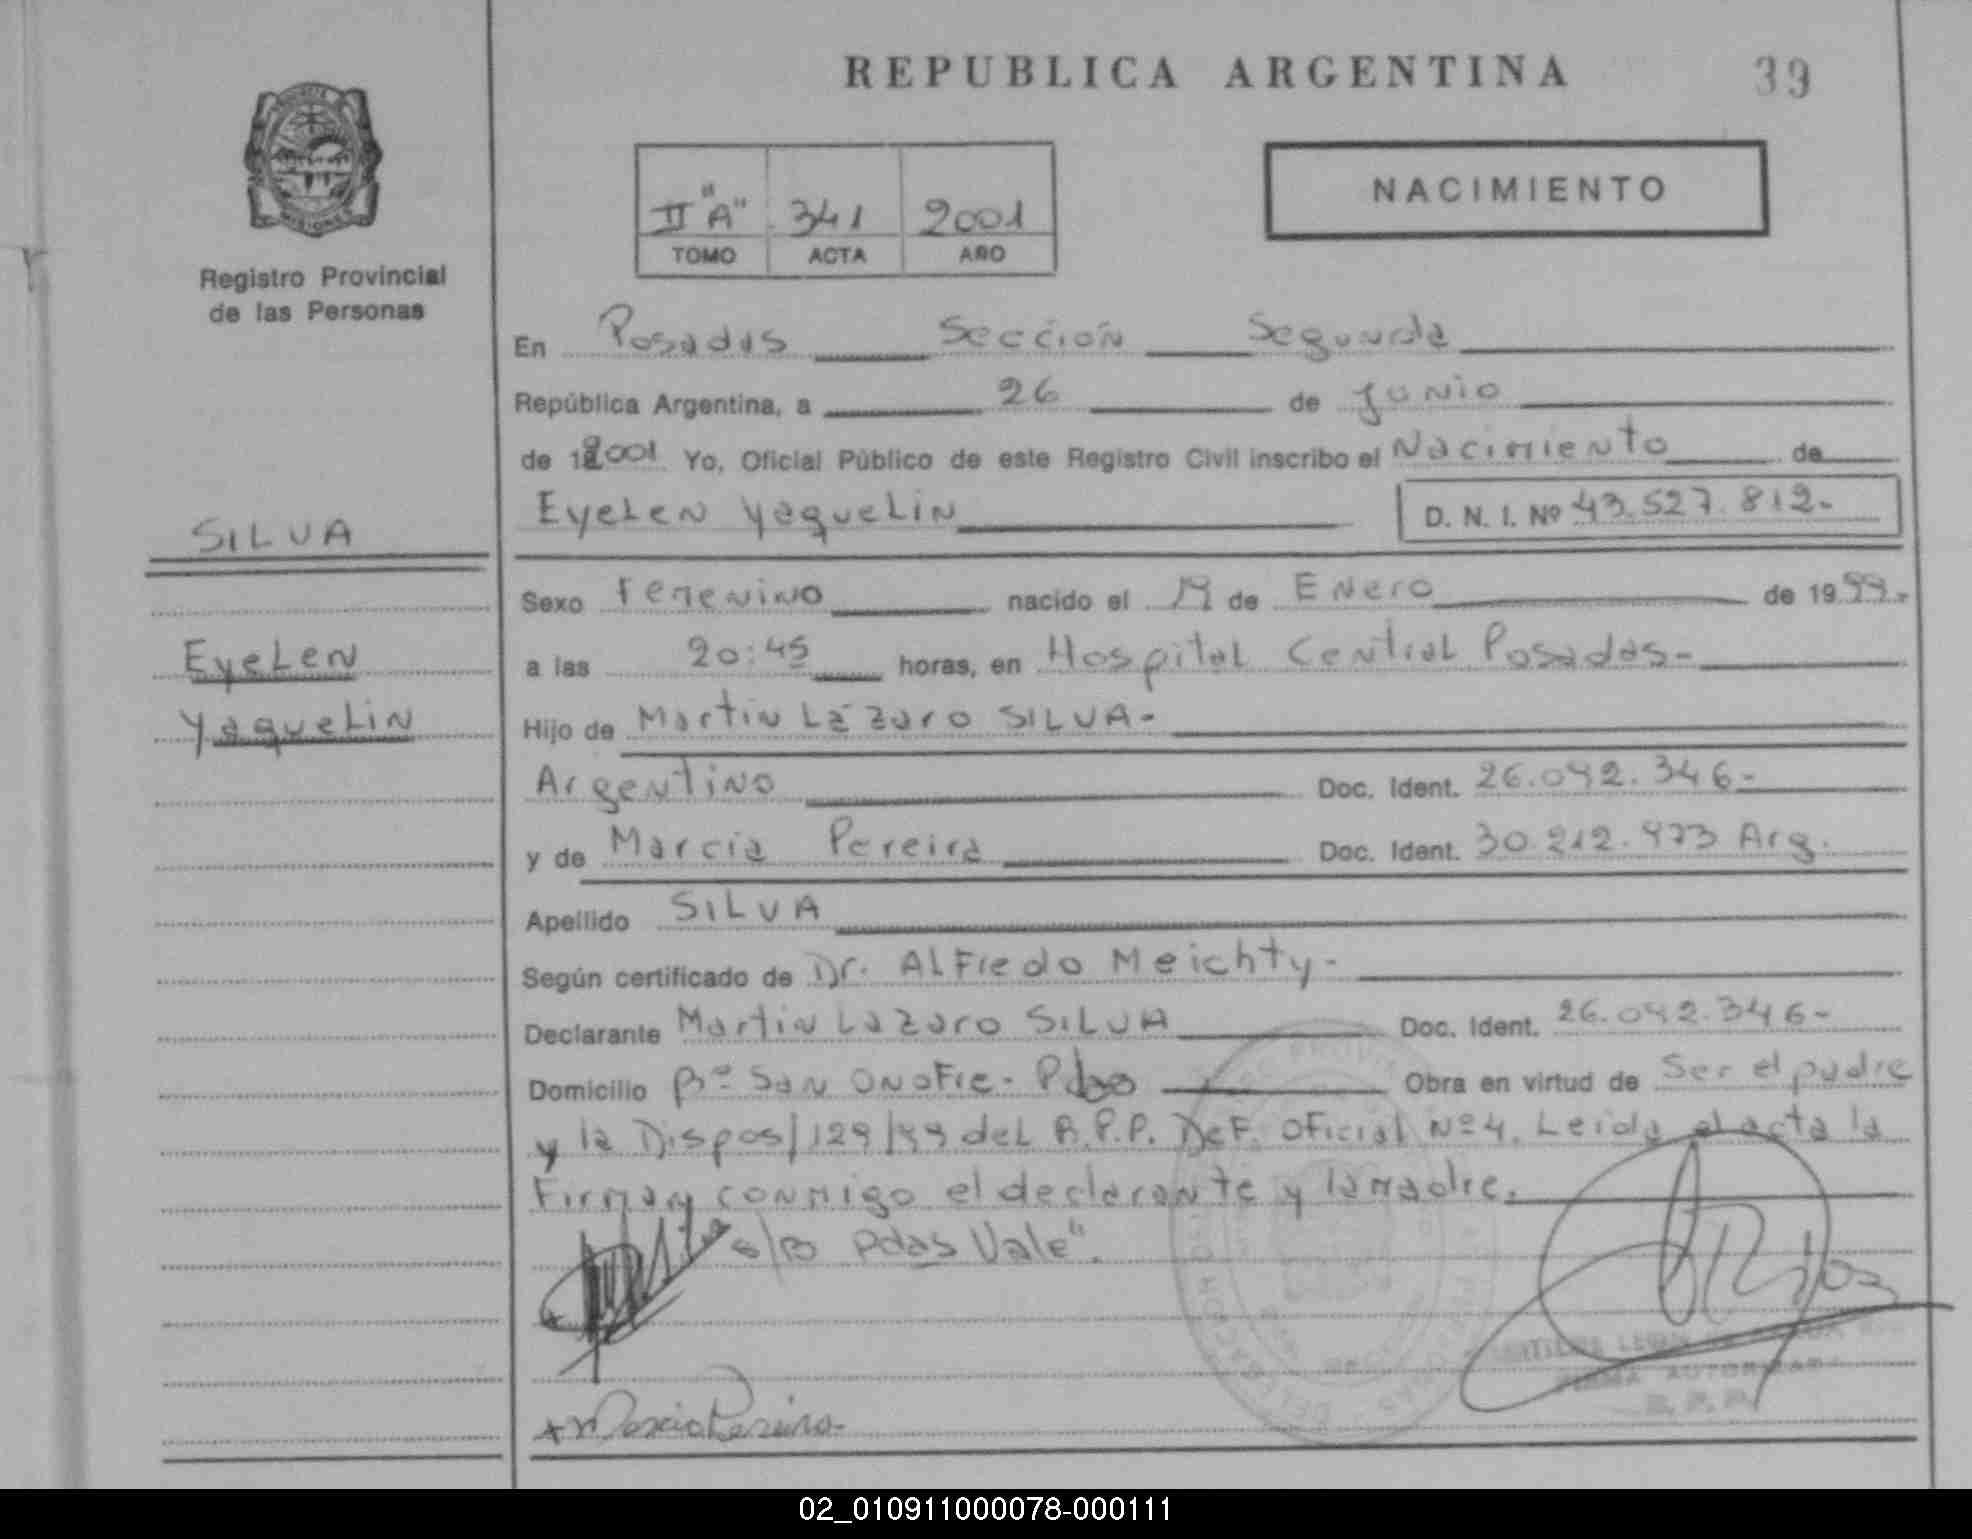 REPUBLICA ARGENTINA
39
II "A" 341 2001
TOMO ACTA AÑO
NACIMIENTO
Registro Provincial
de las Personas
En Posadas Sección Segunda
República Argentina, a 26 de Junio
de 2001 Yo, Oficial Público de este Registro Civil inscribo el Nacimiento de
Eyelen Yaquelin D. N. I. Nº 43.527.812-
SILVA
Sexo Femenino nacido el 19 de Enero de 1999.-
Eyelen
a las 20:45 horas, en Hospital Central Posadas-
Yaquelin
Hijo de Martin Lázaro SILVA-
Argentino Doc. Ident. 26.042.346-
y de Marcia Pereira Doc. Ident. 30.212.473 Arg.
Apellido SILVA
Según certificado de Dr. Alfredo Meichty-
Declarante Martin Lazaro SILVA Doc. Ident. 26.042.346-
Domicilio Bº San Onofre- Obra en virtud de Ser el padre
y la Dispos/129/99 del R.P.P. Def. Oficial Nº4. Leida el acta la
Firman conmigo el declarante y la madre.
s/b Pdas Vale".
FIRMA AUTORIZADA
R. P. P.
Marcia Pereira-
02_010911000078-000111